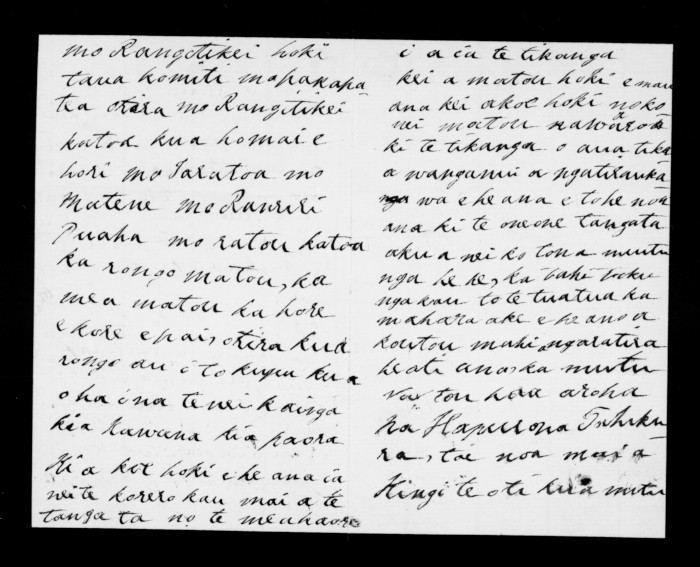 mo Rangitikei hoki
taua komiti mo pakapa
tia otira mo Rangitikei
katoa kua homai e
hori mo Taratoa mo
Matene mo Ranriri
Puaha mo ratou katoa
ka rongo matou, ka
mea matou ka hore
e kore e pai, otira kua
rongo au i to kupu kua
oha ina tenei kainga
kia Kawana kia paora
Ki a koe hoki e he ana ia
nei te korero kau mai a te
tangata no te mea kaore
i a ia te tikanga
kei a matou hoki e mau
ana kei a koe hoki noko
nei matou
ki te tikanga o ana tika
a wanganui a ngatirauka
wa e he ana e tohe noa
ana ki te oneone tangata
aku a nei ko tona mutu
nga he he, ka taku
ngakau to te tuatua ka
mahara ake e he ano a
koutou mahi ngaratira
heati ano ka mutu
tou hoa aroha
na Hapurona Tohiku
ra, tae noa mai a
Kingi te oti kua mutu